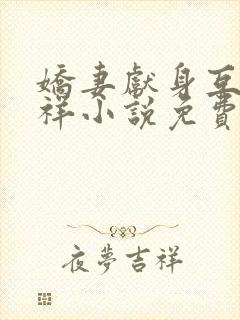 嬌妻獻身互
祥小說免費
夜夢吉祥